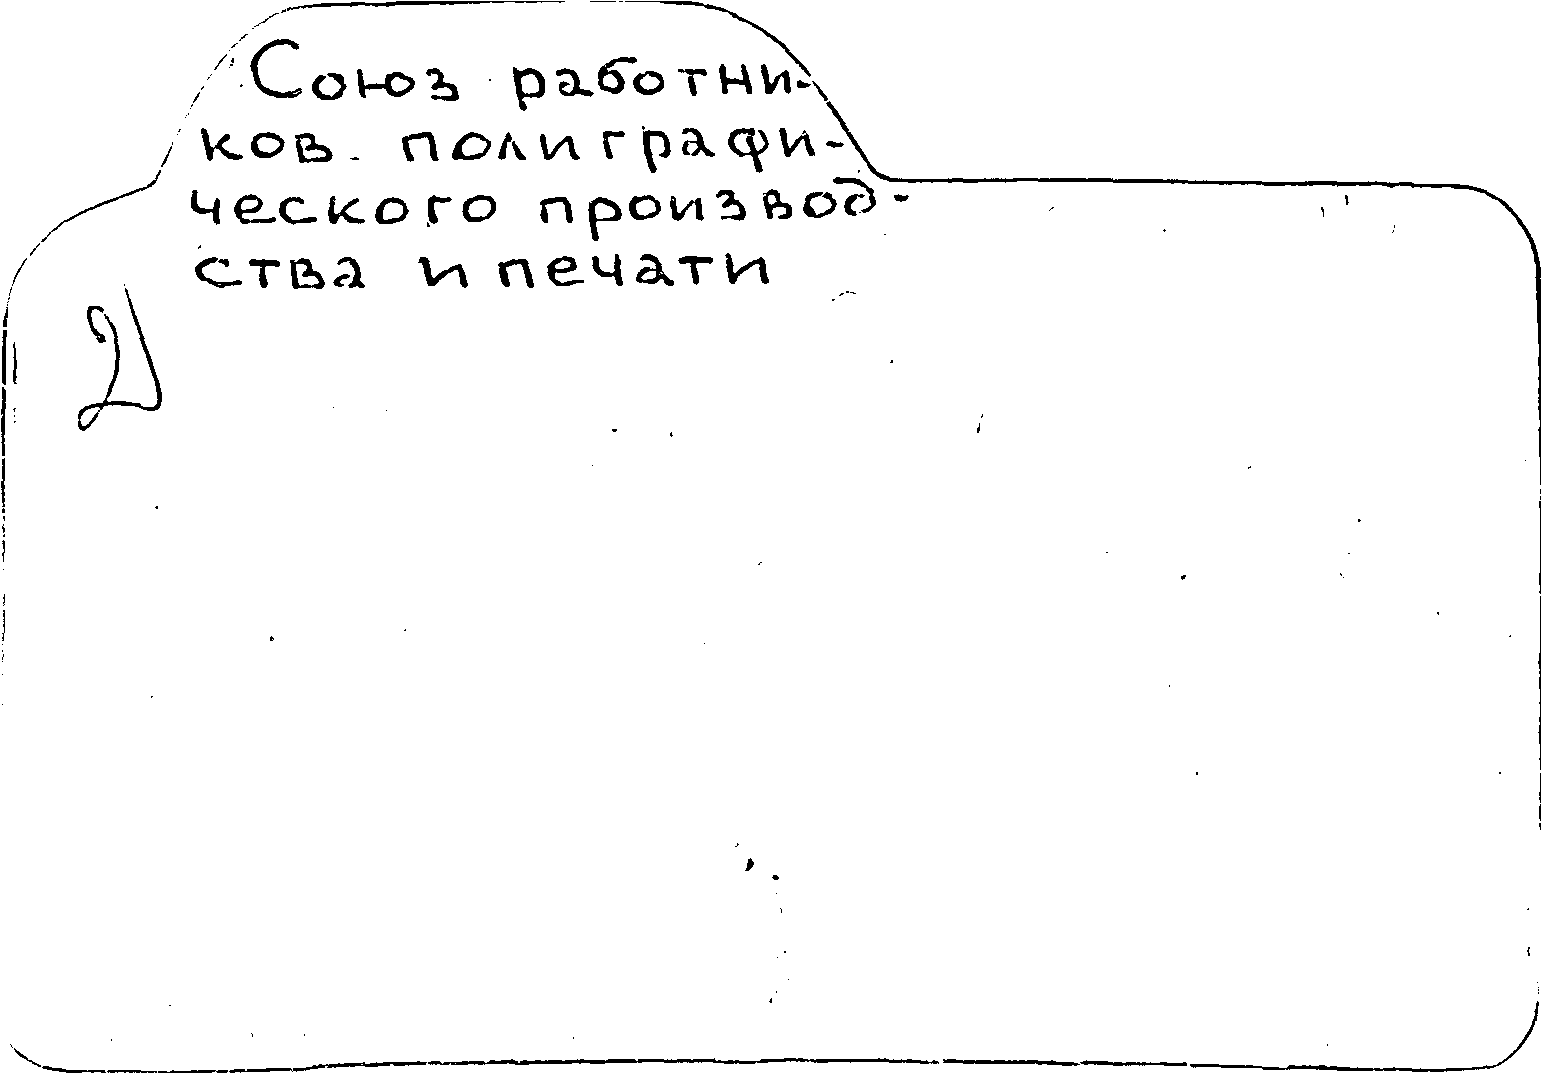 Союз работни-
ков полиграфи-
ческого производ-
ства и печати
2)